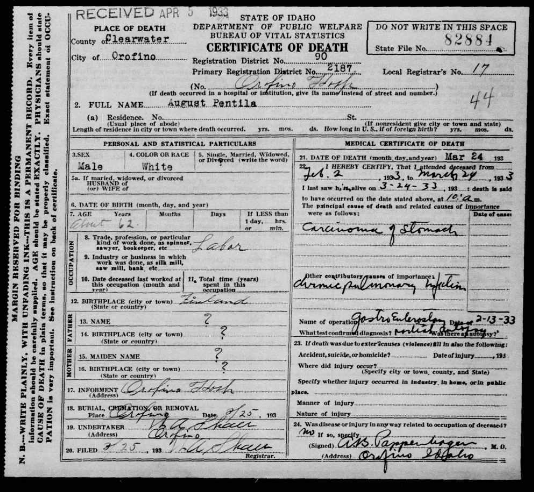 RECEIVED APR 5 1933
STATE OF IDAHO
DEPARTMENT OF PUBLIC WELFARE
BUREAU OF VITAL STATISTICS
CERTIFICATE OF DEATH
DO NOT WRITE IN THIS SPACE
State File No. 82884
PLACE OF DEATH
County of Clearwater
City of Orofino
Registration District No. 90
Primary Registration District No. 2187
Local Registrar's No. 17
(No. Orofino Hosp
(If death occurred in a hospital or institution, give its name instead of street and number.)
44
2. FULL NAME August Pentila
(a) Residence. No. St.
(Usual place of abode) (If nonresident give city or town and state)
Length of residence in city or town where death occurred. yrs. mos. ds. How long in U. S., if of foreign birth? yrs. mos. ds.
PERSONAL AND STATISTICAL PARTICULARS
3. SEX
Male
4. COLOR OR RACE
White
5. Single, Married, Widowed, or Divorced (write the word)
5a. If married, widowed, or divorced
HUSBAND of
(or) WIFE of
6. DATE OF BIRTH (month, day, and year)
7. AGE Years Months Days If LESS than
1 day, hrs.
About 62
OCCUPATION
8. Trade, profession, or particular kind of work done, as spinner, sawyer, bookkeeper, etc Labor
9. Industry or business in which work was done, as silk mill, saw mill, bank, etc
10. Date deceased last worked at this occupation (month and year)
11. Total time (years) spent in this occupation
12. BIRTHPLACE (city or town) Finland
(State or country)
FATHER
13. NAME ?
14. BIRTHPLACE (city or town) ?
(State or country)
MOTHER
15. MAIDEN NAME ?
16. BIRTHPLACE (city or town) ?
(State or country)
17. INFORMENT Orofino Hosp
(Address)
18. BURIAL, CREMATION, OR REMOVAL
Place Orofino Date 3/25, 193
19. UNDERTAKER
(Address) Orofino
20. FILED 3/25, 193
Registrar.
MEDICAL CERTIFICATE OF DEATH
21. DATE OF DEATH (month, day, and year) Mar 24 193
22. I HEREBY CERTIFY, That I attended deceased from
Feb. 2, 1933, to March 24, 1933
I last saw him alive on 3-24-33, 193 death is said
to have occurred on the date stated above, at 10 a m.
The principal cause of death and related causes of importance
were as follows:
Date of onset
Carcinoma of Stomach
Other contributory causes of importance:
Name of operation Date of 2-13-33
What test confirmed diagnosis? Was there autopsy?
23. If death was due to external causes (violence) fill in also the following:
Accident, suicide, or homicide? Date of injury , 193
Where did injury occur?
(Specify city or town, county, and State)
Specify whether injury occurred in industry, in home, or in public
place.
Manner of injury
Nature of injury
24. Was disease or injury in any way related to occupation of deceased?
No If so, specify
(Signed) Pappenhagen M. D.
(Address) Orofino Idaho
MARGIN RESERVED FOR BINDING
N. B.—WRITE PLAINLY, WITH UNFADING INK—THIS IS A PERMANENT RECORD. Every item of
information should be carefully supplied. AGE should be stated EXACTLY. PHYSICIANS should state
CAUSE OF DEATH in plain terms, so that it may be properly classified. Exact statement of OCCU-
PATION is very important. See instruction on back of certificate.